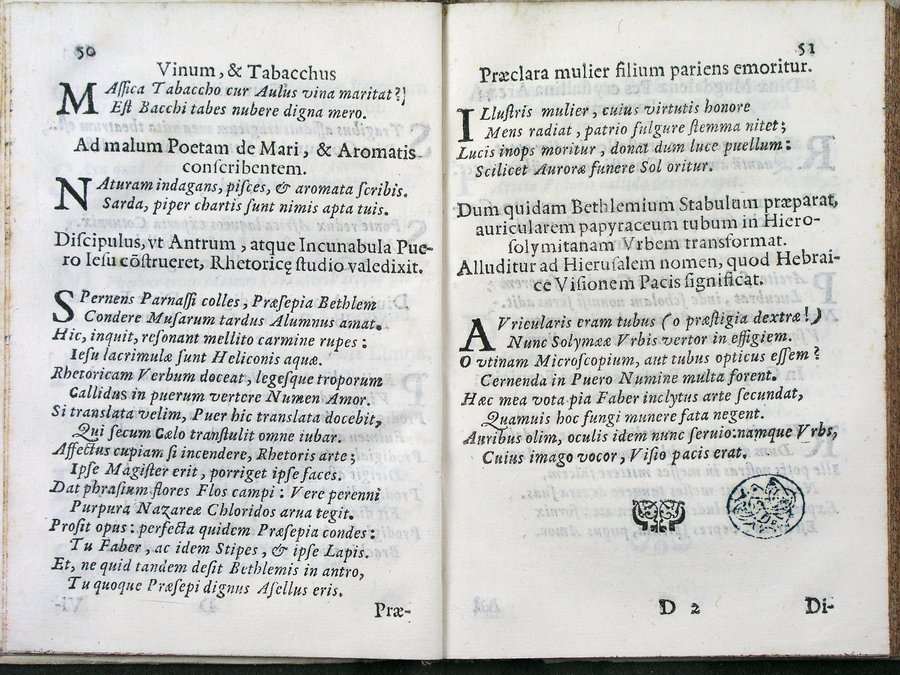 50
Vinum, & Tabacchus
MAſſica Tabaccho cur Aulus vina maritat?]
Eſt Bacchi tabes nubere digna mero.
Ad malum Poetam de Mari, & Aromatis
conſcribentem.
NAturam indagans, piſces, & aromata ſcribis.
Sarda, piper chartis ſunt nimis apta tuis.
Diſcipulus, vt Antrum, atque Incunabula Pue-
ro Ieſu cõſtrueret, Rhetoricę ſtudio valedixit.
SPernens Parnaſſi colles, Præſepia Bethlem
Condere Muſarum tardus Alumnus amat.
Hic, inquit, reſonant mellito carmine rupes:
Ieſu lacrimulæ ſunt Heliconis aquæ.
Rhetoricam Verbum doceat, legeſque troporum
Callidus in puerum vertere Numen Amor.
Si translata velim, Puer hic translata docebit,
Qui ſecum Cælo tranſtulit omne iubar.
Affectus cupiam ſi incendere, Rhetoris arte;
Ipſe Magiſter erit, porriget ipſe faces.
Dat phraſium flores Flos campi: Vere perenni
Purpura Nazareæ Chloridos arua tegit.
Proſit opus: perfecta quidem Præſepia condes:
Tu Faber, ac idem Stipes, & ipſe Lapis.
Et, ne quid tandem deſit Bethlemis in antro,
Tu quoque Præſepi dignus Aſellus eris.
Præ-
51
Præclara mulier filium pariens emoritur.
ILluſtris mulier, cuius virtutis honore
Mens radiat, patrio fulgure ſtemma nitet;
Lucis inops moritur, donat dum luce puellum:
Scilicet Auroræ funere Sol oritur.
Dum quidam Bethlemium Stabulum præparat,
auricularem papyraceum tubum in Hiero-
ſolymitanam Vrbem transformat.
Alluditur ad Hieruſalem nomen, quod Hebrai-
ce Viſionem Pacis ſignificat.
AVricularis eram tubus (o præſtigia dextræ!)
Nunc Solymææ Vrbis vertor in effigiem.
O vtinam Microſcopium, aut tubus opticus eſſem?
Cernenda in Puero Numine multa forent.
Hæc mea vota pia Faber inclytus arte ſecundat,
Quamuis hoc fungi munere fata negent.
Auribus olim, oculis idem nunc ſeruio: namque Vrbs,
Cuius imago vocor, Viſio pacis erat.
D 2
Di-